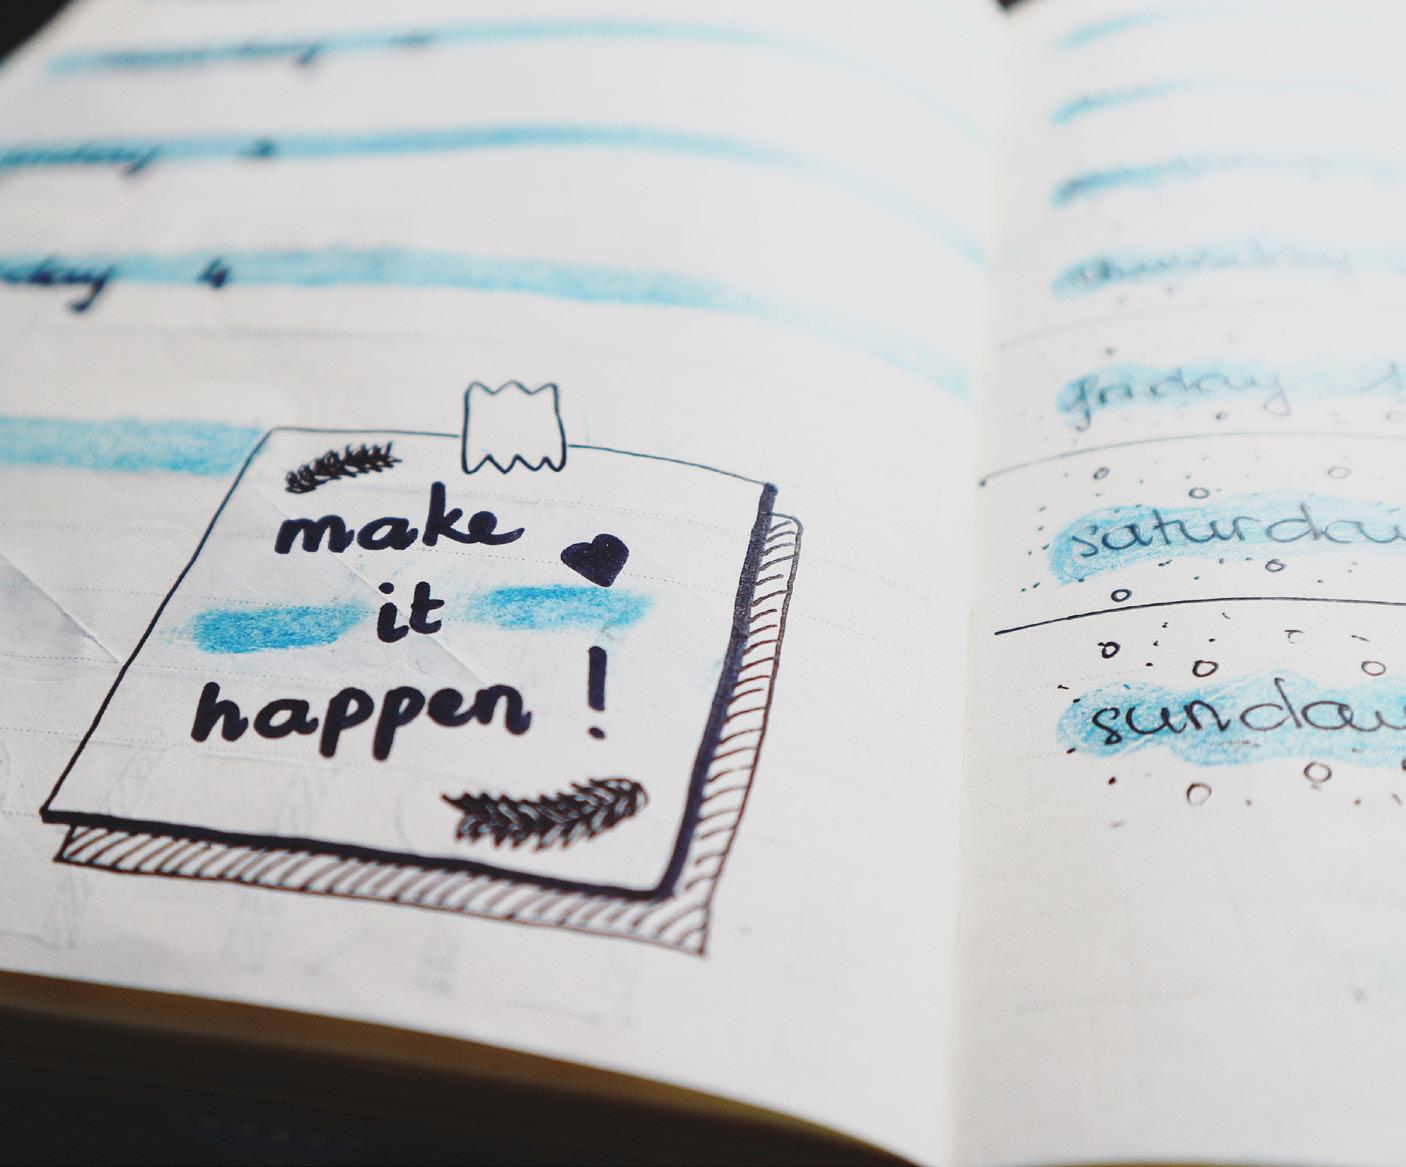 day 4
make
it
happen !
thursday
friday
saturday
sunday